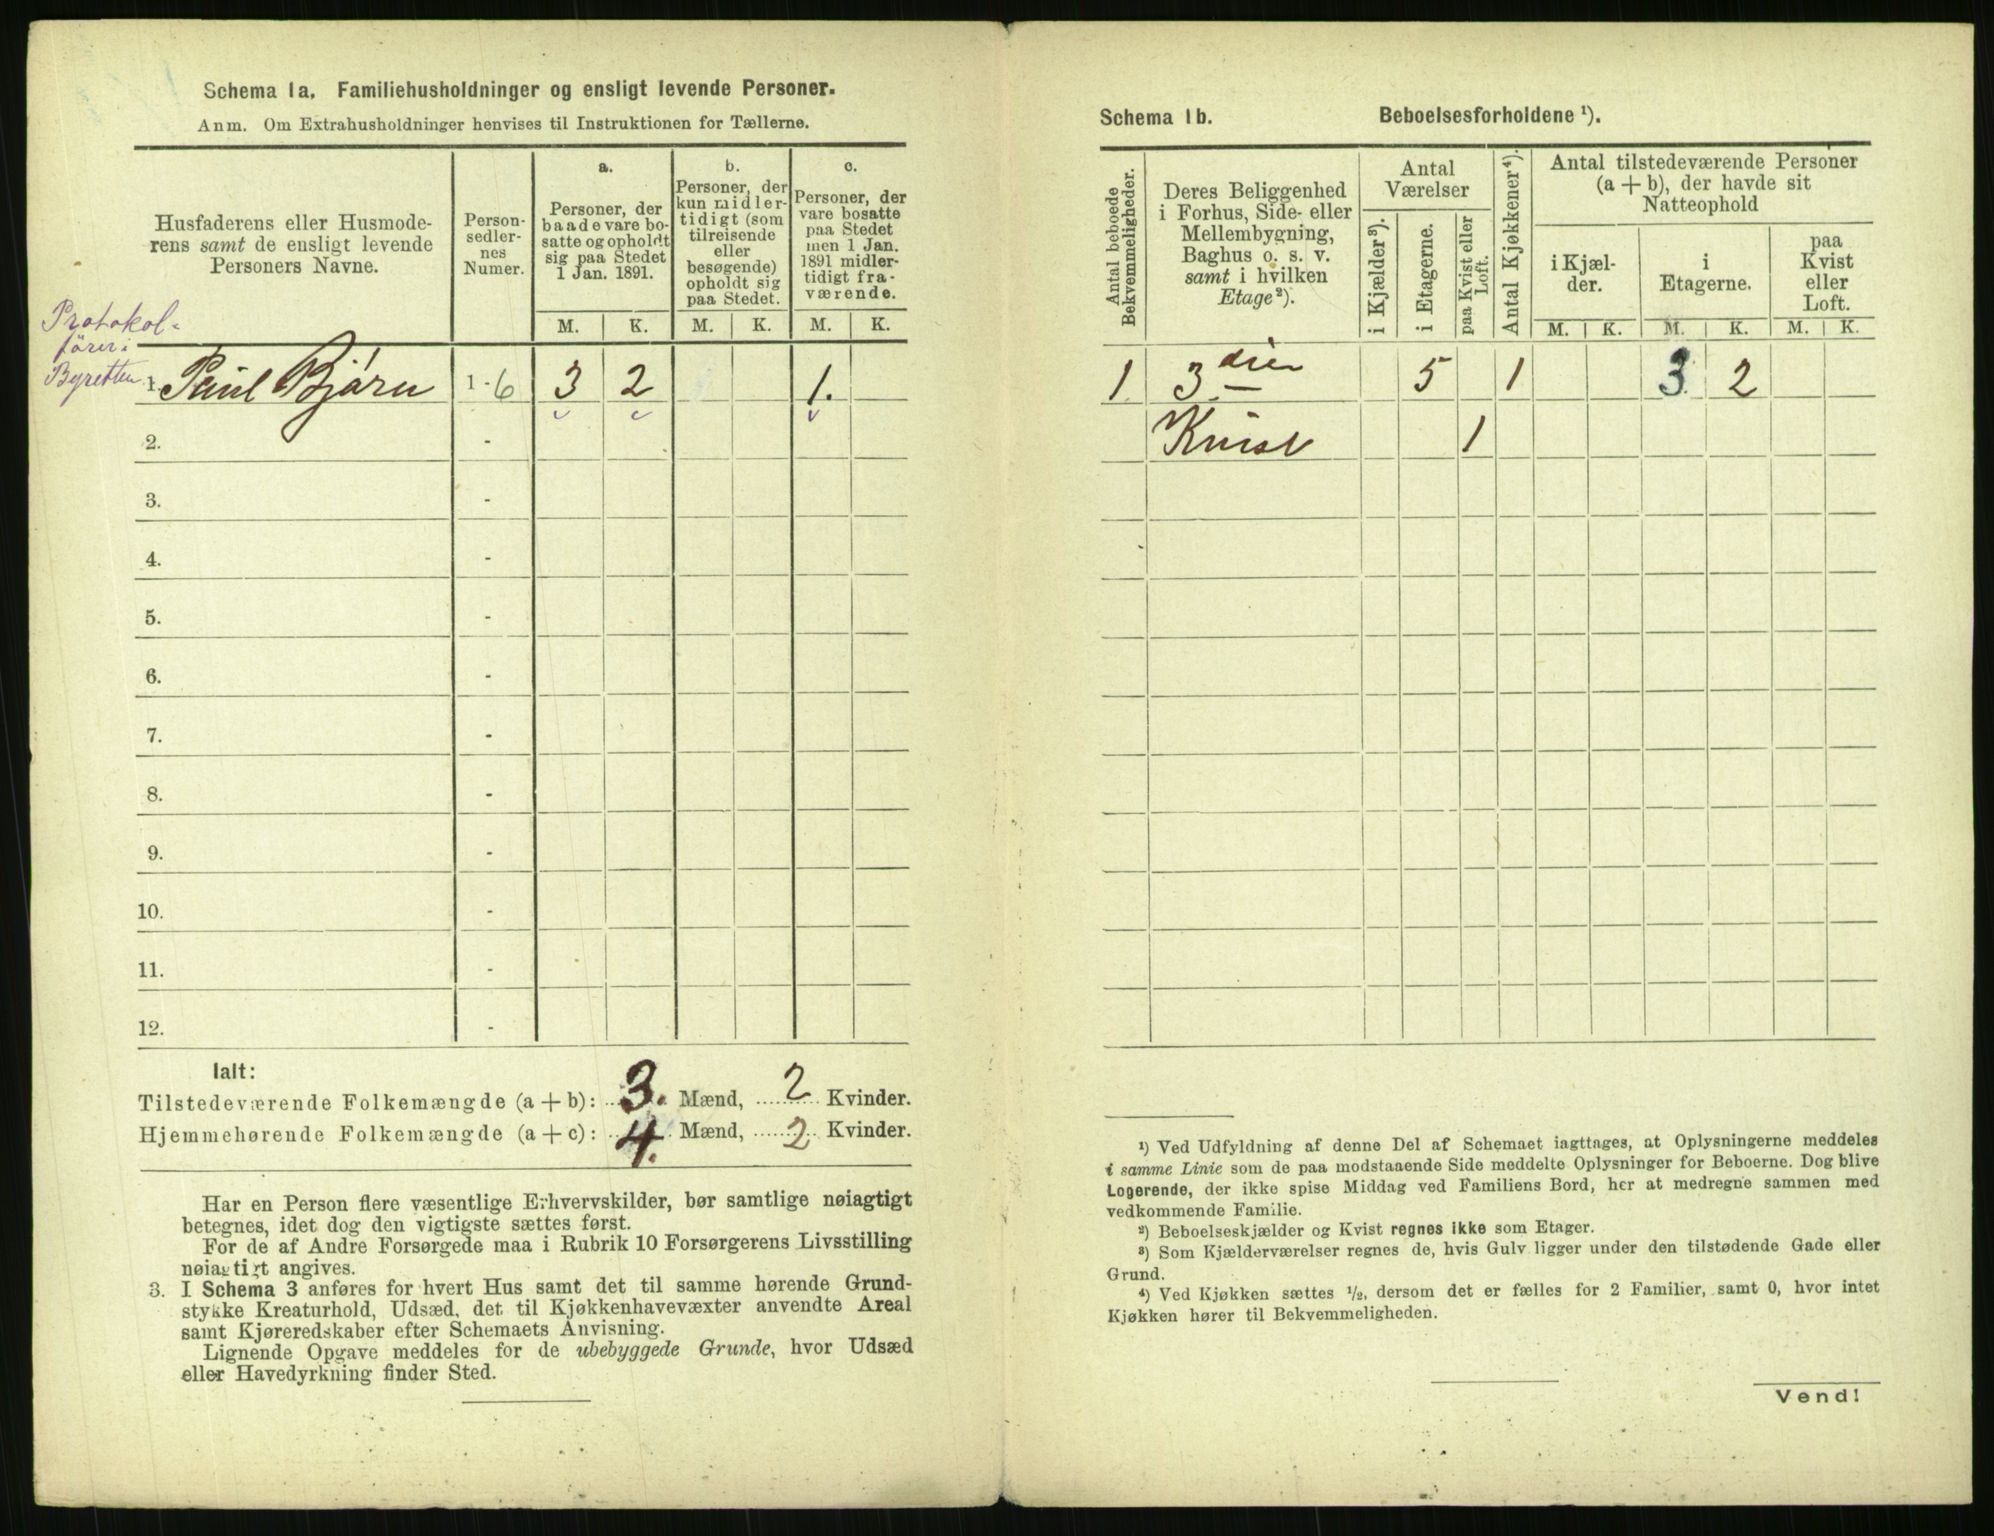 Schema 1a. Familiehusholdninger og ensligt levende Personer.
Anm. Om Extrahusholdninger henvises til Instruktionen for Tællerne.
Husfaderens eller Husmode-
rens samt de ensligt levende
Personers Navne.
Person-
sedler-
nes
Numer.
a.
Personer, der
baade vare bo-
satte og opholdt
sig paa Stedet
1 Jan. 1891.
b.
Personer, der
kun midler-
tidigt (som
tilreisende
eller
besøgende)
opholdt sig
paa Stedet.
c.
Personer, der
vare bosatte
paa Stedet
men 1 Jan.
1891 midler-
tidigt fra-
værende.
M. K. M. K. M. K.
Protokol-
fører i
Byretten
1. Paul Bjørn 1 - 6 3 2 1.
2. -
3. -
4. -
5. -
6. -
7. -
8. -
9. -
10. -
11. -
12. -
Ialt:
Tilstedeværende Folkemængde (a + b): 3. Mænd, 2 Kvinder.
Hjemmehørende Folkemængde (a + c): 4. Mænd, 2 Kvinder.
Har en Person flere væsentlige Erhvervskilder, bør samtlige nøiagtigt
betegnes, idet dog den vigtigste sættes først.
For de af Andre Forsørgede maa i Rubrik 10 Forsørgerens Livsstilling
nøiagtigt angives.
3. I Schema 3 anføres for hvert Hus samt det til samme hørende Grund-
stykke Kreaturhold, Udsæd, det til Kjøkkenhavevæxter anvendte Areal
samt Kjøreredskaber efter Schemaets Anvisning.
Lignende Opgave meddeles for de ubebyggede Grunde, hvor Udsæd
eller Havedyrkning finder Sted.
Schema 1b. Beboelsesforholdene ¹).
Antal beboede
Bekvemmeligheder.
Deres Beliggenhed
i Forhus, Side- eller
Mellembygning,
Baghus o. s. v.
samt i hvilken
Etage²).
Antal
Værelser
i Kjælder³).
i Etagerne.
paa Kvist eller
Loft.
Antal Kjøkkener⁴).
Antal tilstedeværende Personer
(a + b), der havde sit
Natteophold
i Kjæl-
der.
i
Etagerne.
paa
Kvist
eller
Loft.
M. K. M. K. M. K.
1 3die 5 1 3 2
Kvist 1
¹) Ved Udfyldning af denne Del af Schemaet iagttages, at Oplysningerne meddeles
i samme Linie som de paa modstaaende Side meddelte Oplysninger for Beboerne. Dog blive
Logerende, der ikke spise Middag ved Familiens Bord, her at medregne sammen med
vedkommende Familie.
²) Beboelseskjælder og Kvist regnes ikke som Etager.
³) Som Kjælderværelser regnes de, hvis Gulv ligger under den tilstødende Gade eller
Grund.
⁴) Ved Kjøkken sættes ½, dersom det er fælles for 2 Familier, samt 0, hvor intet
Kjøkken hører til Bekvemmeligheden.
Vend!